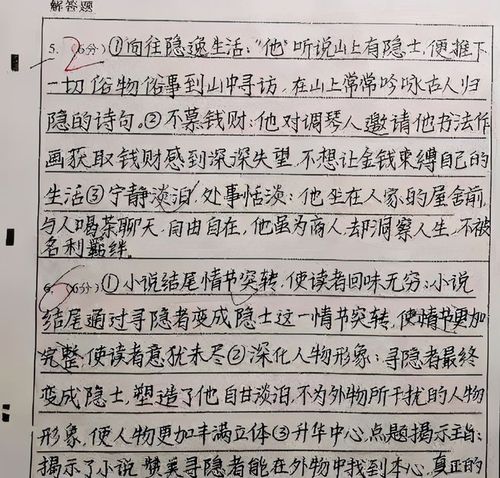 解答题
5. 2(6分)①向往隐逸生活:"他"听说山上有隐士,便推下
一切俗物俗事到山中寻访,在山上常常吟咏古人归
隐的诗句。②不慕钱财:他对调琴人邀请他书法作
画获取钱财感到深深失望,不想让金钱束缚自己的
生活③宁静淡泊,处事恬淡:他坐在人家的屋舍前,
与人喝茶聊天,自由自在,他虽为商人却洞察人生,不被
名利羁绊。
6. 6(6分)①小说结尾情节突转,使读者回味无穷:小说
结尾通过寻隐者变成隐士这一情节突转,使情节更加
完整,使读者意犹未尽②深化人物形象:寻隐者最终
变成隐士,塑造了他自甘淡泊,不为外物所干扰的人物
形象,使人物更加丰满立体③升华中心,点题揭示主旨:
揭示了小说赞美寻隐者能在外物中找到本心,真正的